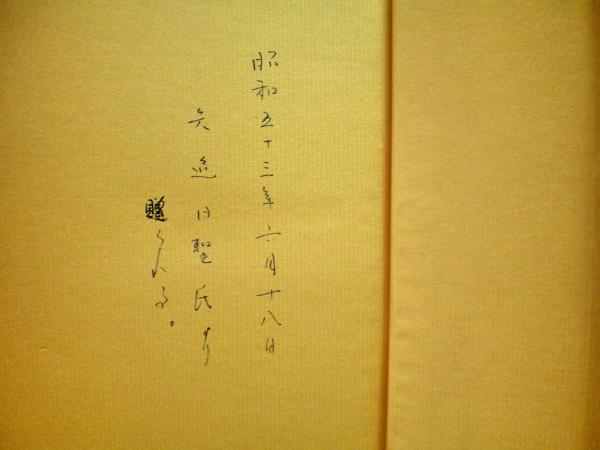 昭和五十三年六月十八日
矢追日聖氏より
贈らる。